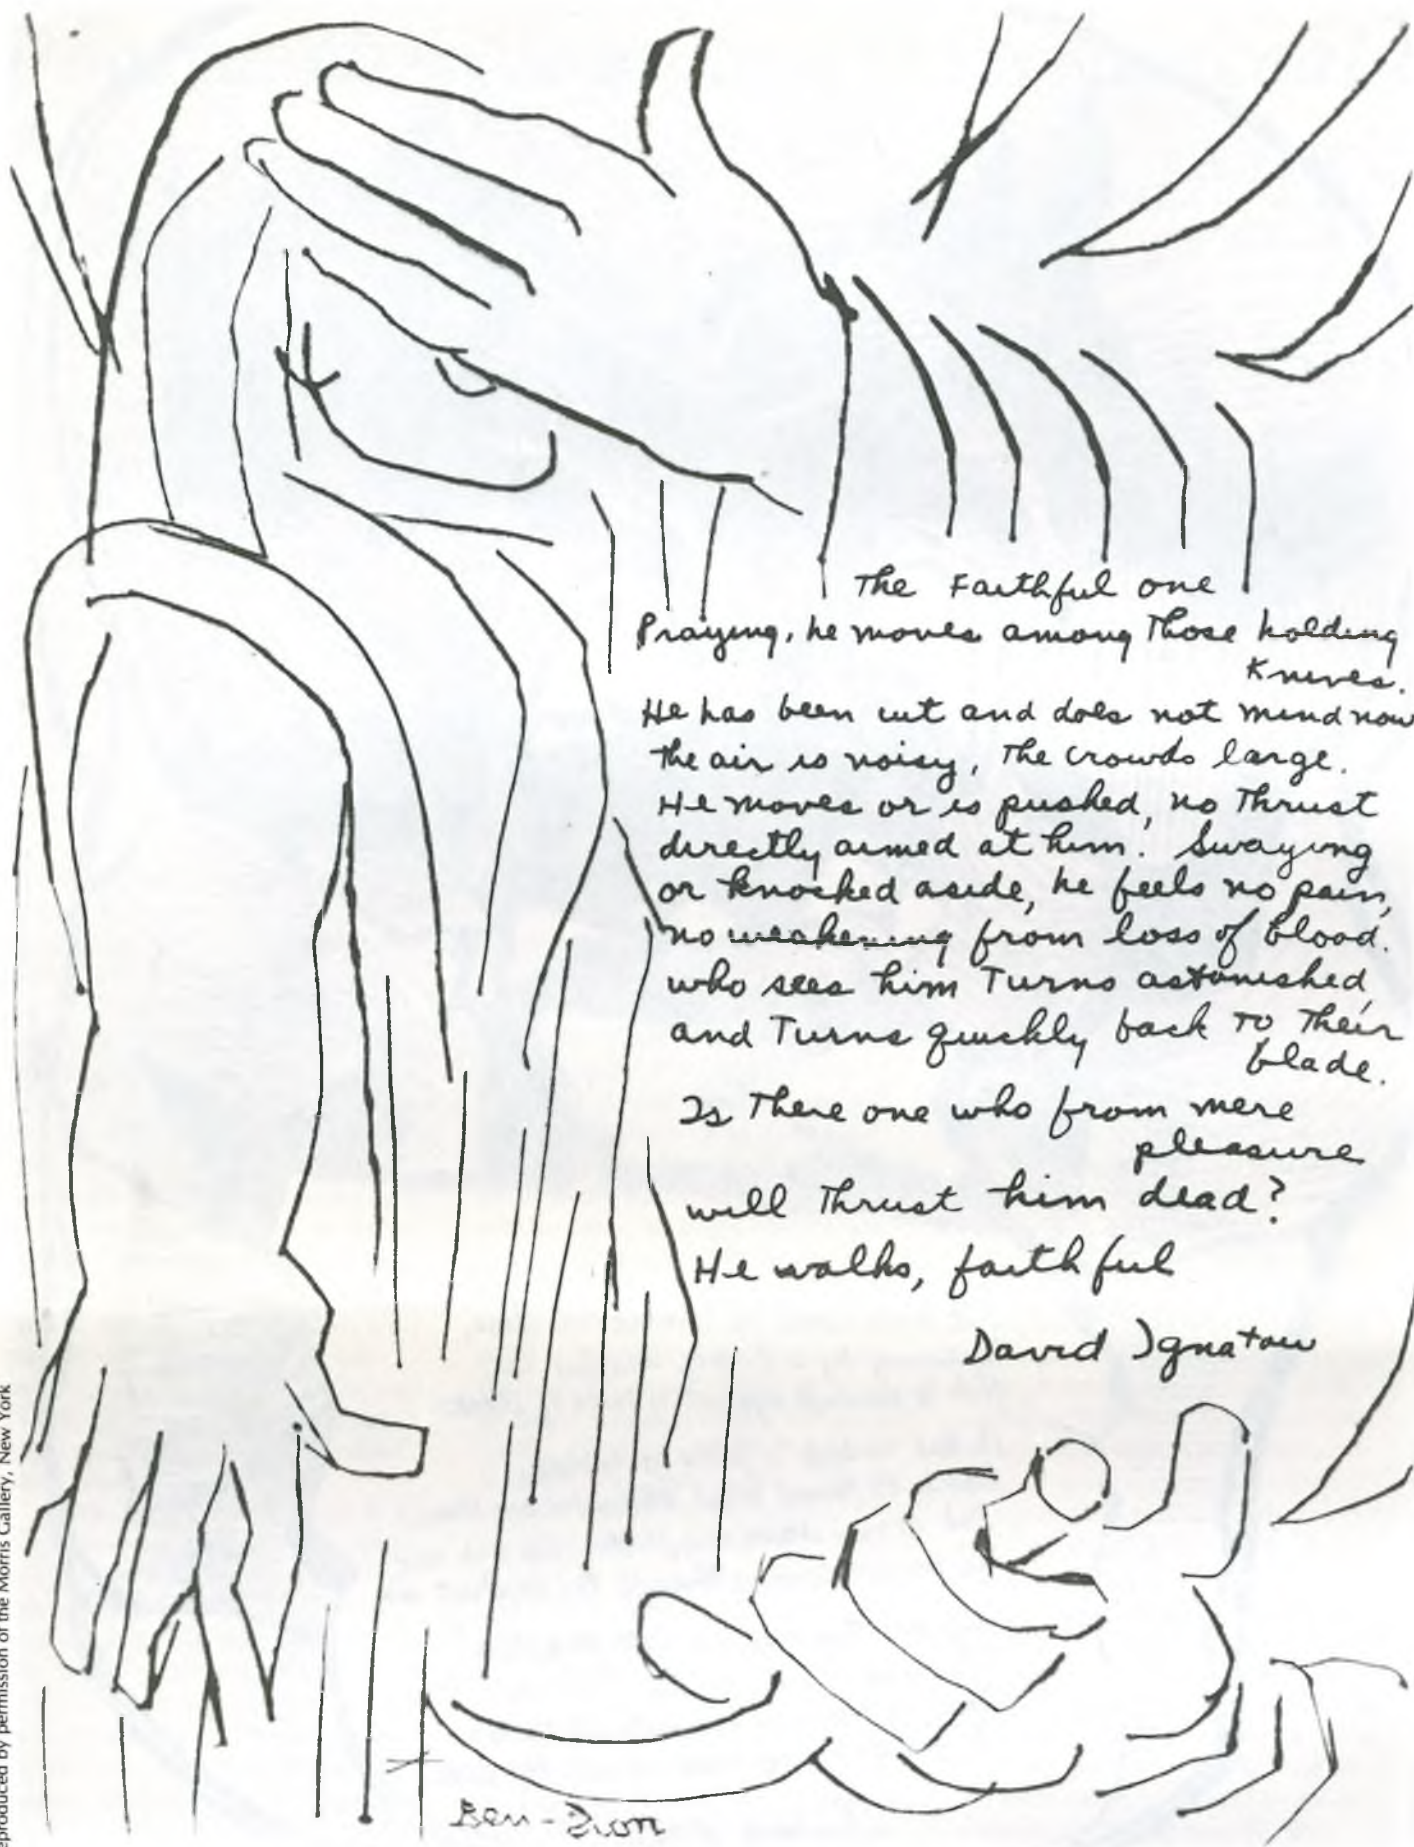 The Faithful one
Praying, he moves among Those holding
Knives.
He has been cut and does not mind now
the air is noisy, The crowds large.
He moves or is pushed, no Thrust
directly aimed at him. Swaying
or knocked aside, he feels no pain,
no weakening from loss of blood.
who sees him Turns astonished,
and Turns quickly back To Their
blade.
Is There one who from mere
pleasure
will Thrust him dead?
He walks, faithful
David Ignatow
Ben-Zion
eproduced by permission of the Morris Gallery, New York